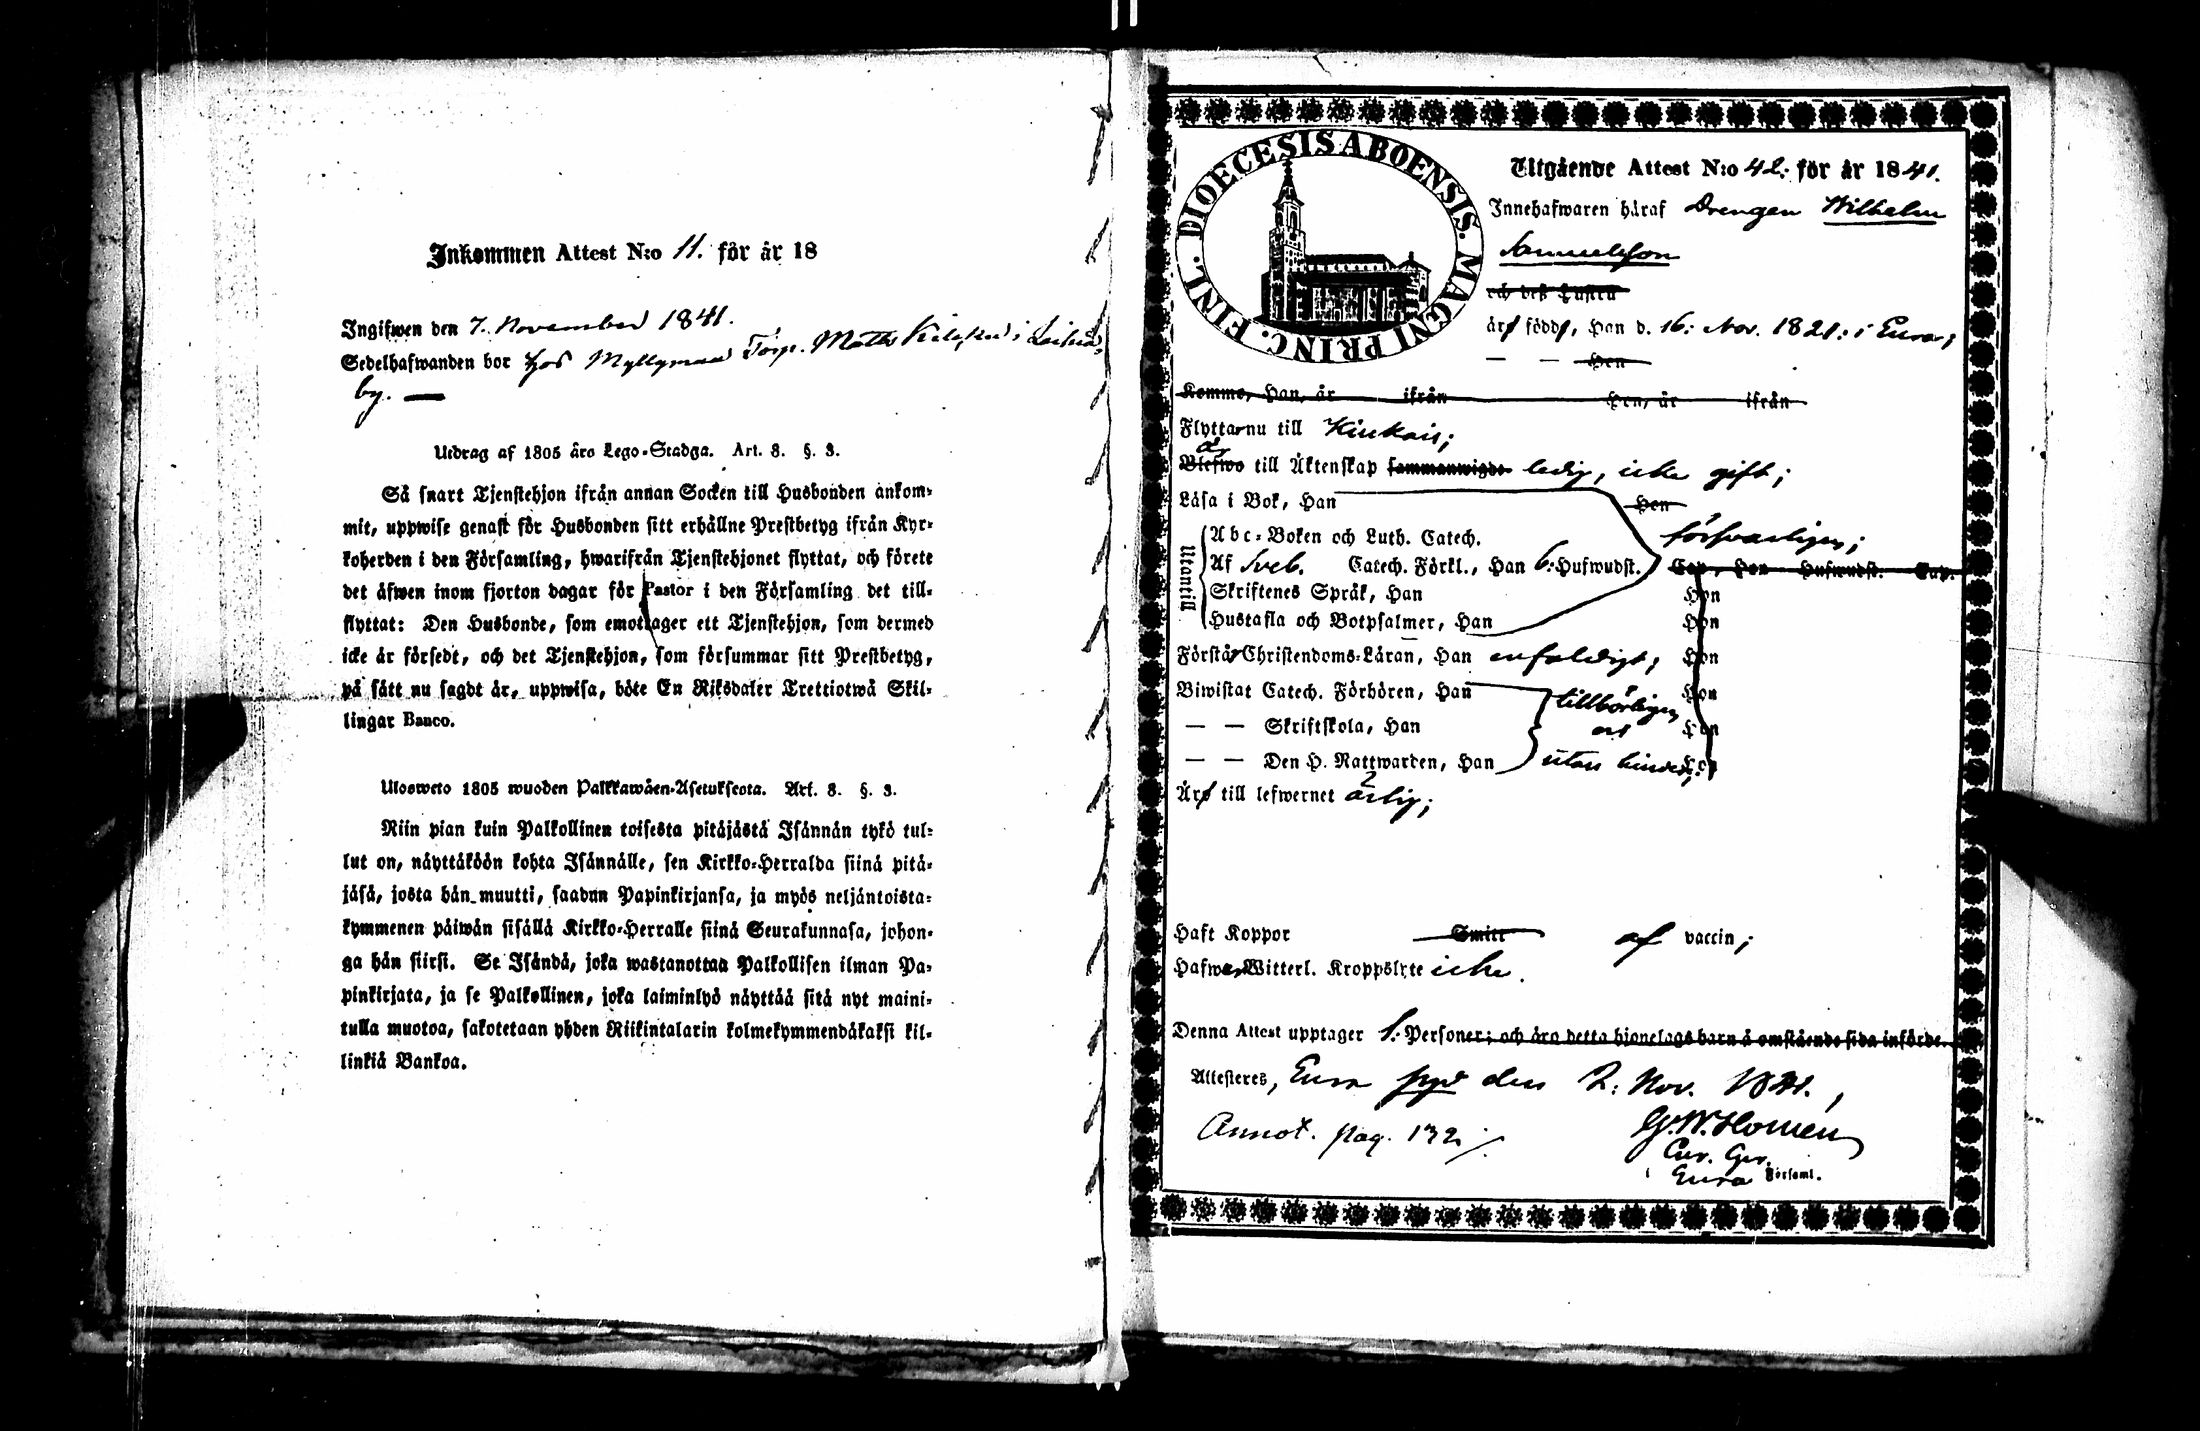 Inkommen Attest N:o 11. för år 18
Ingifwen den 7. November 1841.
Sedelhafwanden bor hos Myllymaa Torp. Matts i
by. —
Utdrag af 1805 års Lego-Stadga. Art. 3. §. 3.
Så snart Tjenstehjon ifrån annan Socken till Husbonden ankom-
mit, uppwise genast för Husbonden sitt erhållne Prestbetyg ifrån Kyr-
koherden i den Församling, hwarifrån Tjenstehjonet flyttat, och förete
det äfwen inom fjorton dagar för Pastor i den Församling det till-
flyttat: Den Husbonde, som emottager ett Tjenstehjon, som dermed
icke är försedt, och det Tjenstehjon, som försummar sitt Prestbetyg,
på sätt nu sagdt är, uppwisa, böte En Riksdaler Trettiotwå Skil-
lingar Banco.
Ulosweto 1805 wuoden Palkkawäen-Asetuksesta. Art. 3. §. 3.
Niin pian kuin Palkollinen toisesta pitäjästä Isännän tykö tul-
lut on, näyttäköön kohta Isännälle, sen Kirkko-Herralda siinä pitä-
jäsä, josta hän muutti, saadun Papinkirjansa, ja myös neljäntoista-
kymmenen päiwän sisällä Kirkko-Herralle siinä Seurakunnasa, johon-
ga hän siirsi. Se Isändä, joka wastanottaa Palkollisen ilman Pa-
pinkirjata, ja se Palkollinen, joka laiminlyö näyttää sitä nyt maini-
tulla muotoa, sakotetaan yhden Riikintalarin kolmekymmendäkaksi kil-
linkiä Bankoa.
DIOECESIS ABOENSIS. MAGNI PRINC. FINL.
Utgående Attest N:o 42: för år 1841.
Innehafwaren häraf Drengen Wilhelm
Samuelsson
och deß Hustru
är född, Han d. 16: Nov. 1821: i Eura;
— — Hon
Komne, Han, år ifrån Hon, år ifrån
Flyttar nu till Kiukais;
är
Blefwo till Äktenskap sammanwigde ledig, icke gift;
Läsa i Bok, Han Hon
Utantill
Abc-Boken och Luth. Catech. försvarligen;
Af Sveb. Catech. Förkl., Han 6: Hufwudst. Cap., Hon Hufwudst. Cap.
Skriftenes Språk, Han Hon
Hustafla och Botpsalmer, Han Hon
Förstår Christendoms-Läran, Han enfaldigt; Hon
Biwistat Catech. Förhören, Han tillbörligen Hon
— — Skriftskola, Han och Hon
— — Den H. Nattwarden, Han utan hinder; Hon
Är till lefwernet ärlig;
Haft Koppor Smitt af vaccin;
Hafwer Witterl. Kroppslyte icke.
Denna Attest upptager 1. Personer; och äro detta hjonelags barn å omstående sida införde.
Attesteres, Eura den 2: Nov. 1841,
Annot. pag. 132
G. W. Homén
Cur. Ger.
i Eura Församl.